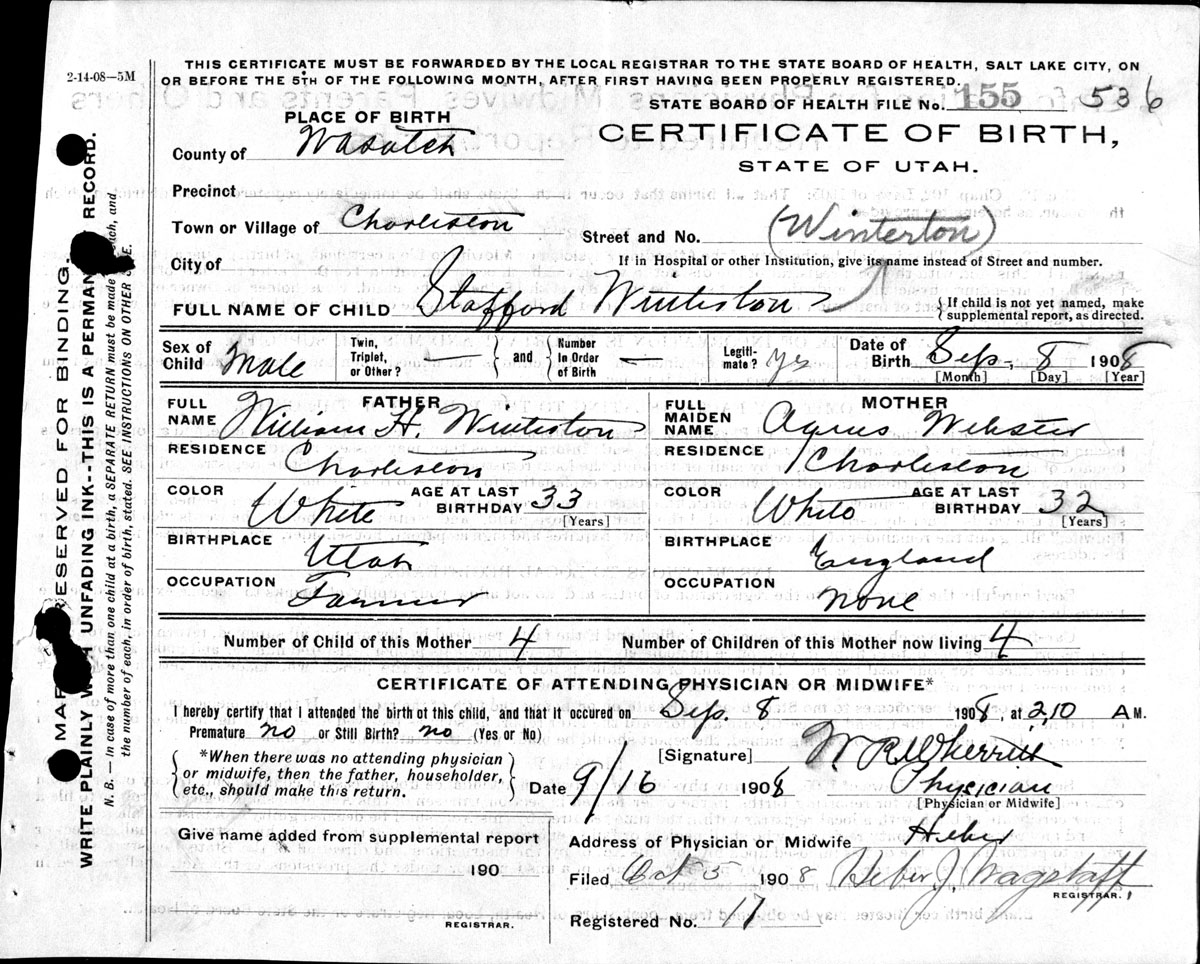 2-14-08—5M
THIS CERTIFICATE MUST BE FORWARDED BY THE LOCAL REGISTRAR TO THE STATE BOARD OF HEALTH, SALT LAKE CITY, ON
OR BEFORE THE 5TH OF THE FOLLOWING MONTH, AFTER FIRST HAVING BEEN PROPERLY REGISTERED.
STATE BOARD OF HEALTH FILE No. 155 536
PLACE OF BIRTH
CERTIFICATE OF BIRTH,
STATE OF UTAH.
County of Wasatch
Precinct
Town or Village of Charleston
Street and No. (Winterton)
City of
If in Hospital or other Institution, give its name instead of Street and number.
FULL NAME OF CHILD Stafford Winterton
{If child is not yet named, make
supplemental report, as directed.
Sex of Child Male Twin, Triplet, or Other? — {and} Number In Order of Birth — Legiti-mate? yes Date of Birth Sep. 8 1908
[Month] [Day] [Year]
FATHER MOTHER
FULL NAME William H. Winterton FULL MAIDEN NAME Agnes Webster
RESIDENCE Charleston RESIDENCE Charleston
COLOR White AGE AT LAST BIRTHDAY 33 [Years] COLOR White AGE AT LAST BIRTHDAY 32 [Years]
BIRTHPLACE Utah BIRTHPLACE England
OCCUPATION Farmer OCCUPATION None
Number of Child of this Mother 4 Number of Children of this Mother now living 4
CERTIFICATE OF ATTENDING PHYSICIAN OR MIDWIFE*
I hereby certify that I attended the birth of this child, and that it occured on Sep. 8 1908, at 2,10 A M.
Premature no or Still Birth? no (Yes or No)
{*When there was no attending physician
or midwife, then the father, householder,
etc., should make this return.}
[Signature] W R Wherritt
Date 9/16 1908 Physician
[Physician or Midwife]
Give name added from supplemental report
190
REGISTRAR.
Address of Physician or Midwife Heber
Filed Oct 5 1908 Heber J. Wagstaff,
REGISTRAR.
Registered No. 17
MARGIN RESERVED FOR BINDING.
WRITE PLAINLY WITH UNFADING INK--THIS IS A PERMANENT RECORD.
N. B. — In case of more than one child at a birth, a SEPARATE RETURN must be made for each, and
the number of each, in order of birth, stated. SEE INSTRUCTIONS ON OTHER SIDE.